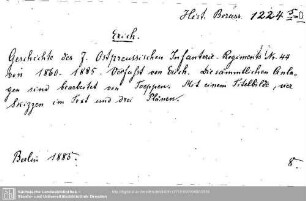 Hist. Boruss. 1224
Erich.
Geschichte des 7. Ostpreussischen Infanterie-Regiments Nr. 44
von 1860-1885. Verfasst von Erich. Die sämmtlichen Anla-
gen sind bearbeitet von Toeppen. Mit einem Titelbilde, vier
Skizzen im Text und drei Plänen.
Berlin 1885. 8°